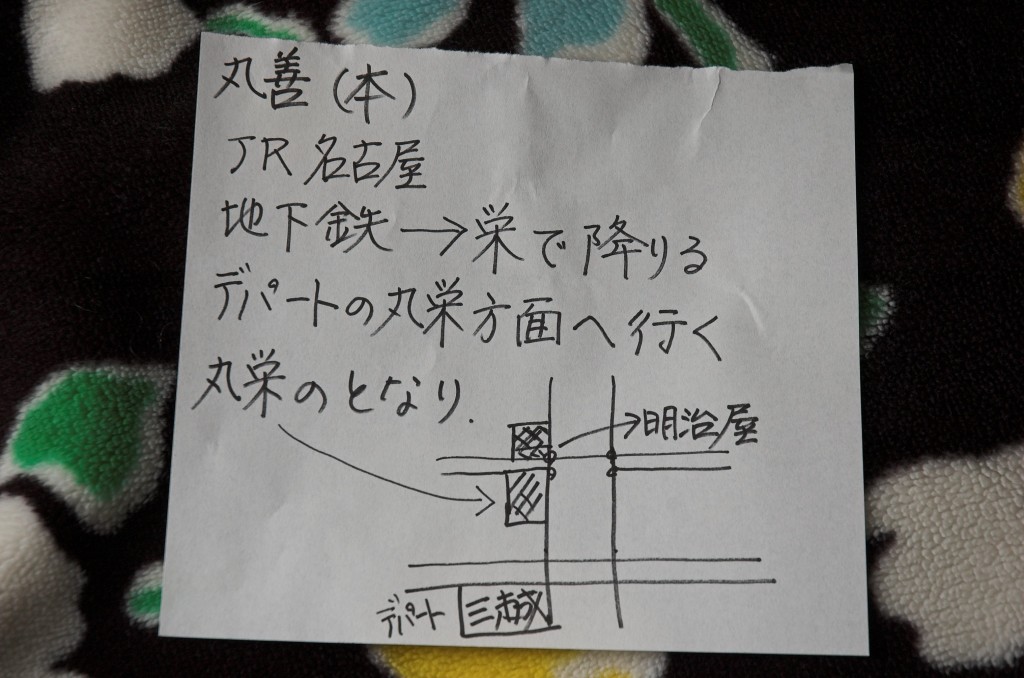 丸善(本)
JR名古屋
地下鉄→栄で降りる
デパートの丸栄方面へ行く
丸栄のとなり.
→明治屋
デパート 三越